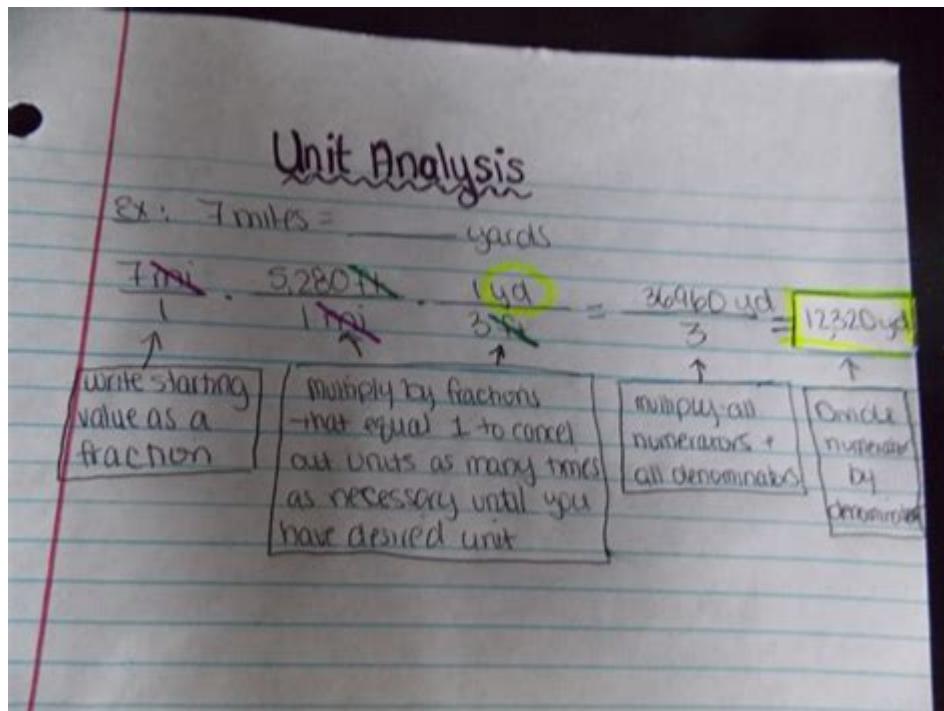 Unit Analysis
Ex: 7 miles = ______ yards
7 mi/1 · 5,280 ft/1 mi · 1 yd/3 ft = 36960 yd/3 = 12,320 yd
write starting
value as a
fraction
multiply by fractions
that equal 1 to cancel
out units as many times
as necessary until you
have desired unit
multiply all
numerators +
all denominators
Divide
numerator
by
denominator